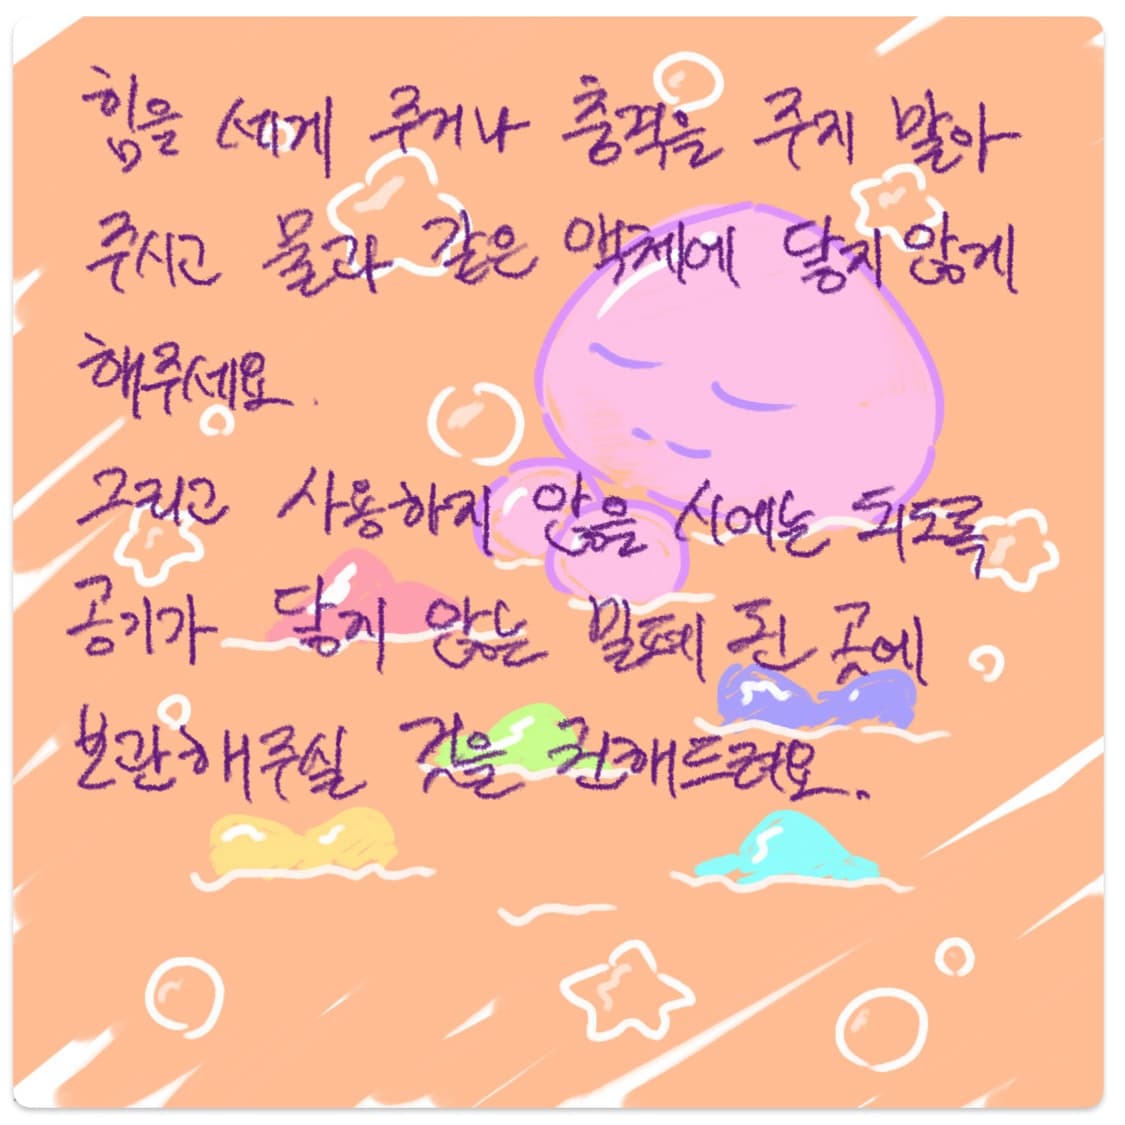 힘을 세게 주거나 충격을 주지 말아
주시고 물과 같은 액체에 닿지 않게
해주세요.
그리고 사용하지 않을 시에는 되도록
공기가 닿지 않는 밀폐 된 곳에
보관해주실 것을 권해드려요.